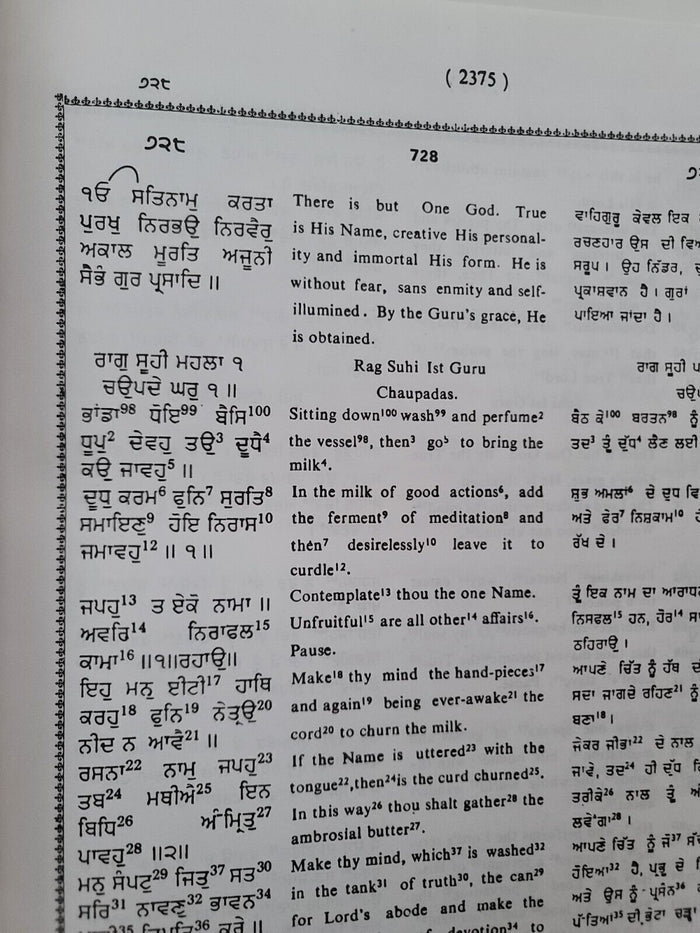 ੭੨੮
( 2375 )
੭੨੮
728
ੴ ਸਤਿਨਾਮੁ ਕਰਤਾ
ਪੁਰਖੁ ਨਿਰਭਉ ਨਿਰਵੈਰੁ
ਅਕਾਲ ਮੂਰਤਿ ਅਜੂਨੀ
ਸੈਭੰ ਗੁਰ ਪ੍ਰਸਾਦਿ ॥
ਰਾਗੁ ਸੂਹੀ ਮਹਲਾ ੧
ਚਉਪਦੇ ਘਰੁ ੧ ॥
ਭਾਂਡਾ98 ਧੋਇ99 ਬੈਸਿ100
ਧੂਪੁ2 ਦੇਵਹੁ ਤਉ3 ਦੂਧੈ4
ਕਉ ਜਾਵਹੁ5 ॥
ਦੂਧੁ ਕਰਮ6 ਫੁਨਿ7 ਸੁਰਤਿ8
ਸਮਾਇਣੁ9 ਹੋਇ ਨਿਰਾਸ10
ਜਮਾਵਹੁ12 ॥ ੧ ॥
ਜਪਹੁ13 ਤ ਏਕੋ ਨਾਮਾ ॥
ਅਵਰਿ14 ਨਿਰਾਫਲ15
ਕਾਮਾ16 ॥੧॥ਰਹਾਉ॥
ਇਹੁ ਮਨੁ ਈਟੀ17 ਹਾਥਿ
ਕਰਹੁ18 ਫੁਨਿ19 ਨੇਤ੍ਰਉ20
ਨੀਦ ਨ ਆਵੈ21 ॥
ਰਸਨਾ22 ਨਾਮੁ ਜਪਹੁ23
ਤਬ24 ਮਥੀਐ25 ਇਨ
ਬਿਧਿ26 ਅੰਮ੍ਰਿਤੁ27
ਪਾਵਹੁ28 ॥੨॥
ਮਨੁ ਸੰਪਟੁ29 ਜਿਤੁ37 ਸਤ30
ਸਰਿ31 ਨਾਵਣੁ32 ਭਾਵਨ34
There is but One God. True
is His Name, creative His personal-
ity and immortal His form. He is
without fear, sans enmity and self-
illumined. By the Guru's grace, He
is obtained.
Rag Suhi Ist Guru
Chaupadas.
Sitting down100 wash99 and perfume2
the vessel98, then3 go5 to bring the
milk4.
In the milk of good actions6, add
the ferment9 of meditation8 and
then7 desirelessly10 leave it to
curdle12.
Contemplate13 thou the one Name.
Unfruitful15 are all other14 affairs16.
Pause.
Make18 thy mind the hand-pieces17
and again19 being ever-awake21 the
cord20 to churn the milk.
If the Name is uttered23 with the
tongue22,then24is the curd churned25.
In this way26 thou shalt gather28 the
ambrosial butter27.
Make thy mind, which37 is washed32
in the tank31 of truth30, the can29
for Lord's abode and make the
devotion34 to
ਵਾਹਿਗੁਰੂ ਕੇਵਲ ਇਕ
ਰਚਣਹਾਰ ਉਸ ਦੀ
ਸਰੂਪ । ਉਹ ਨਿੱਡਰ,
ਪ੍ਰਕਾਸ਼ਵਾਨ ਹੈ । ਗੁਰਾਂ
ਪਾਇਆ ਜਾਂਦਾ ਹੈ ।
ਰਾਗੁ ਸੂਹੀ
ਬੈਠ ਕੇ100 ਬਰਤਨ98 ਨੂੰ
ਤਦ3 ਤੂੰ ਦੁੱਧ4 ਲੈਣ ਲਈ
ਸ਼ੁਭ ਅਮਲਾਂ6 ਦੇ ਦੁਧ
ਅਤੇ ਫੇਰ7 ਨਿਸ਼ਕਾਮ10
ਰੱਖ ਦੇ ।
ਤੂੰ ਇਕ ਨਾਮ ਦਾ
ਨਿਸਫਲ15 ਹਨ, ਹੋਰ14
ਠਹਿਰਾਉ ।
ਆਪਣੇ ਚਿੱਤ ਨੂੰ ਹੱਥ
ਸਦਾ ਜਾਗਦੇ ਰਹਿਣ21 ਨੂੰ
ਬਣਾ18 ।
ਜੇਕਰ ਜੀਭਾ22 ਦੇ ਨਾਲ
ਜਾਵੇ, ਤਦ24 ਹੀ ਦੁੱਧ
ਤਰੀਕੇ26 ਨਾਲ ਤੂੰ
ਲਵੇਂਗਾ28 ।
ਆਪਣੇ ਚਿੱਤ ਨੂੰ ਜੋ37
ਹੋਇਆ32 ਹੈ, ਪ੍ਰਭੂ ਦੇ
ਅਤੇ ਉਸ ਨੂੰ ਪ੍ਰਸੰਨ36
ਪੱਤਿਆਂ35 ਦੀ ਭੇਟਾ ਚੜ੍ਹਾ